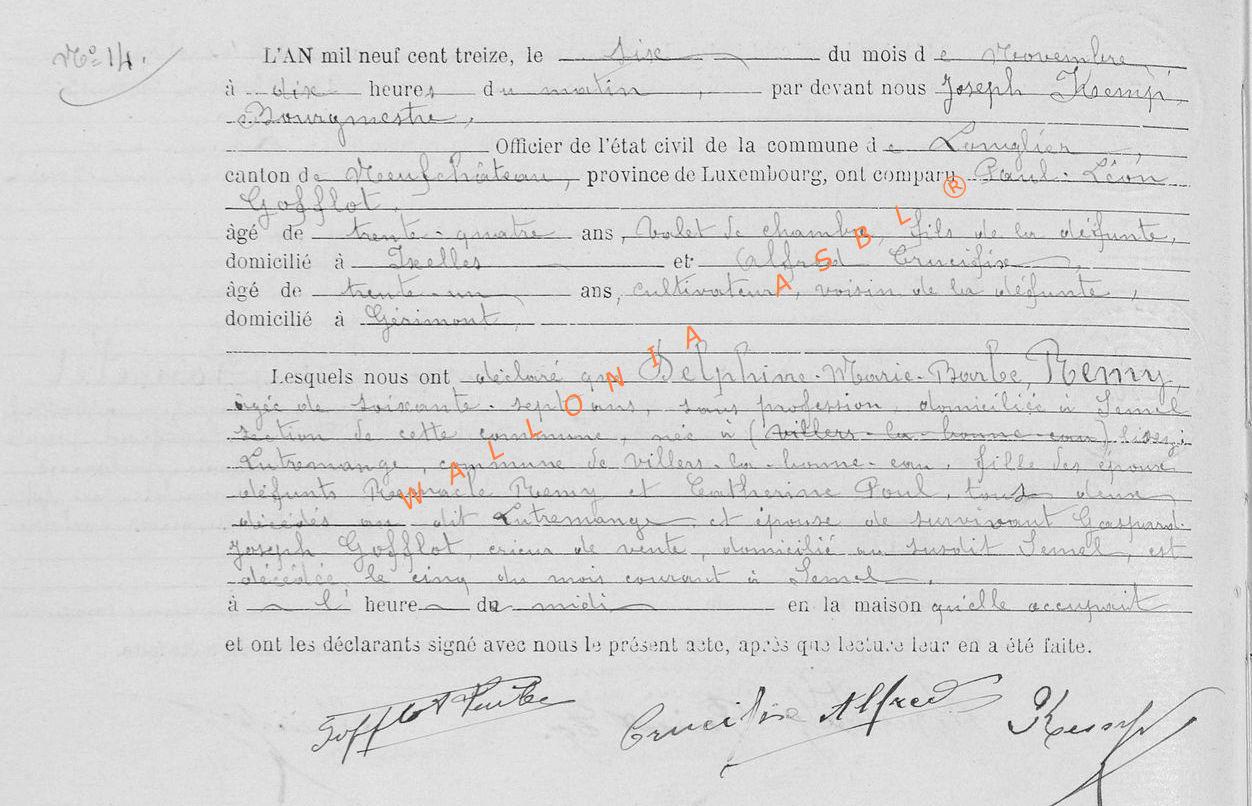 N° 14.
L'AN mil neuf cent treize, le six du mois de Novembre
à dix heures du matin, par devant nous Joseph Kemp,
Bourgmestre,
Officier de l'état civil de la commune de Longlier,
canton de Neufchâteau, province de Luxembourg, ont comparu Paul-Léon
Gofflot,
âgé de trente-quatre ans, valet de chambre, fils de la défunte,
domicilié à Ixelles et Alfred Crucifix,
âgé de trente-un ans, cultivateur, voisin de la défunte,
domicilié à Gérimont,
Lesquels nous ont déclaré que Delphine-Marie-Barbe, Remy,
âgée de soixante-sept ans, sans profession, domiciliée à Semel
section de cette commune, née à (villers-la-bonne-eau) lisez:
Lutremange, commune de villers-la-bonne-eau, fille des époux
défunts Remacle Remy et Catherine Poul, tous deux
décédés au dit Lutremange, et épouse de survivant Gaspard-
Joseph Gofflot, crieur de vente, domicilié au susdit Semel, est
décédée le cinq du mois courant à Semel,
à l' heure du midi en la maison qu'elle occupait
et ont les déclarants signé avec nous le présent acte, après que lecture leur en a été faite.
Gofflot Crucifix Alfred Kemp
WALLONIA ASBL ®